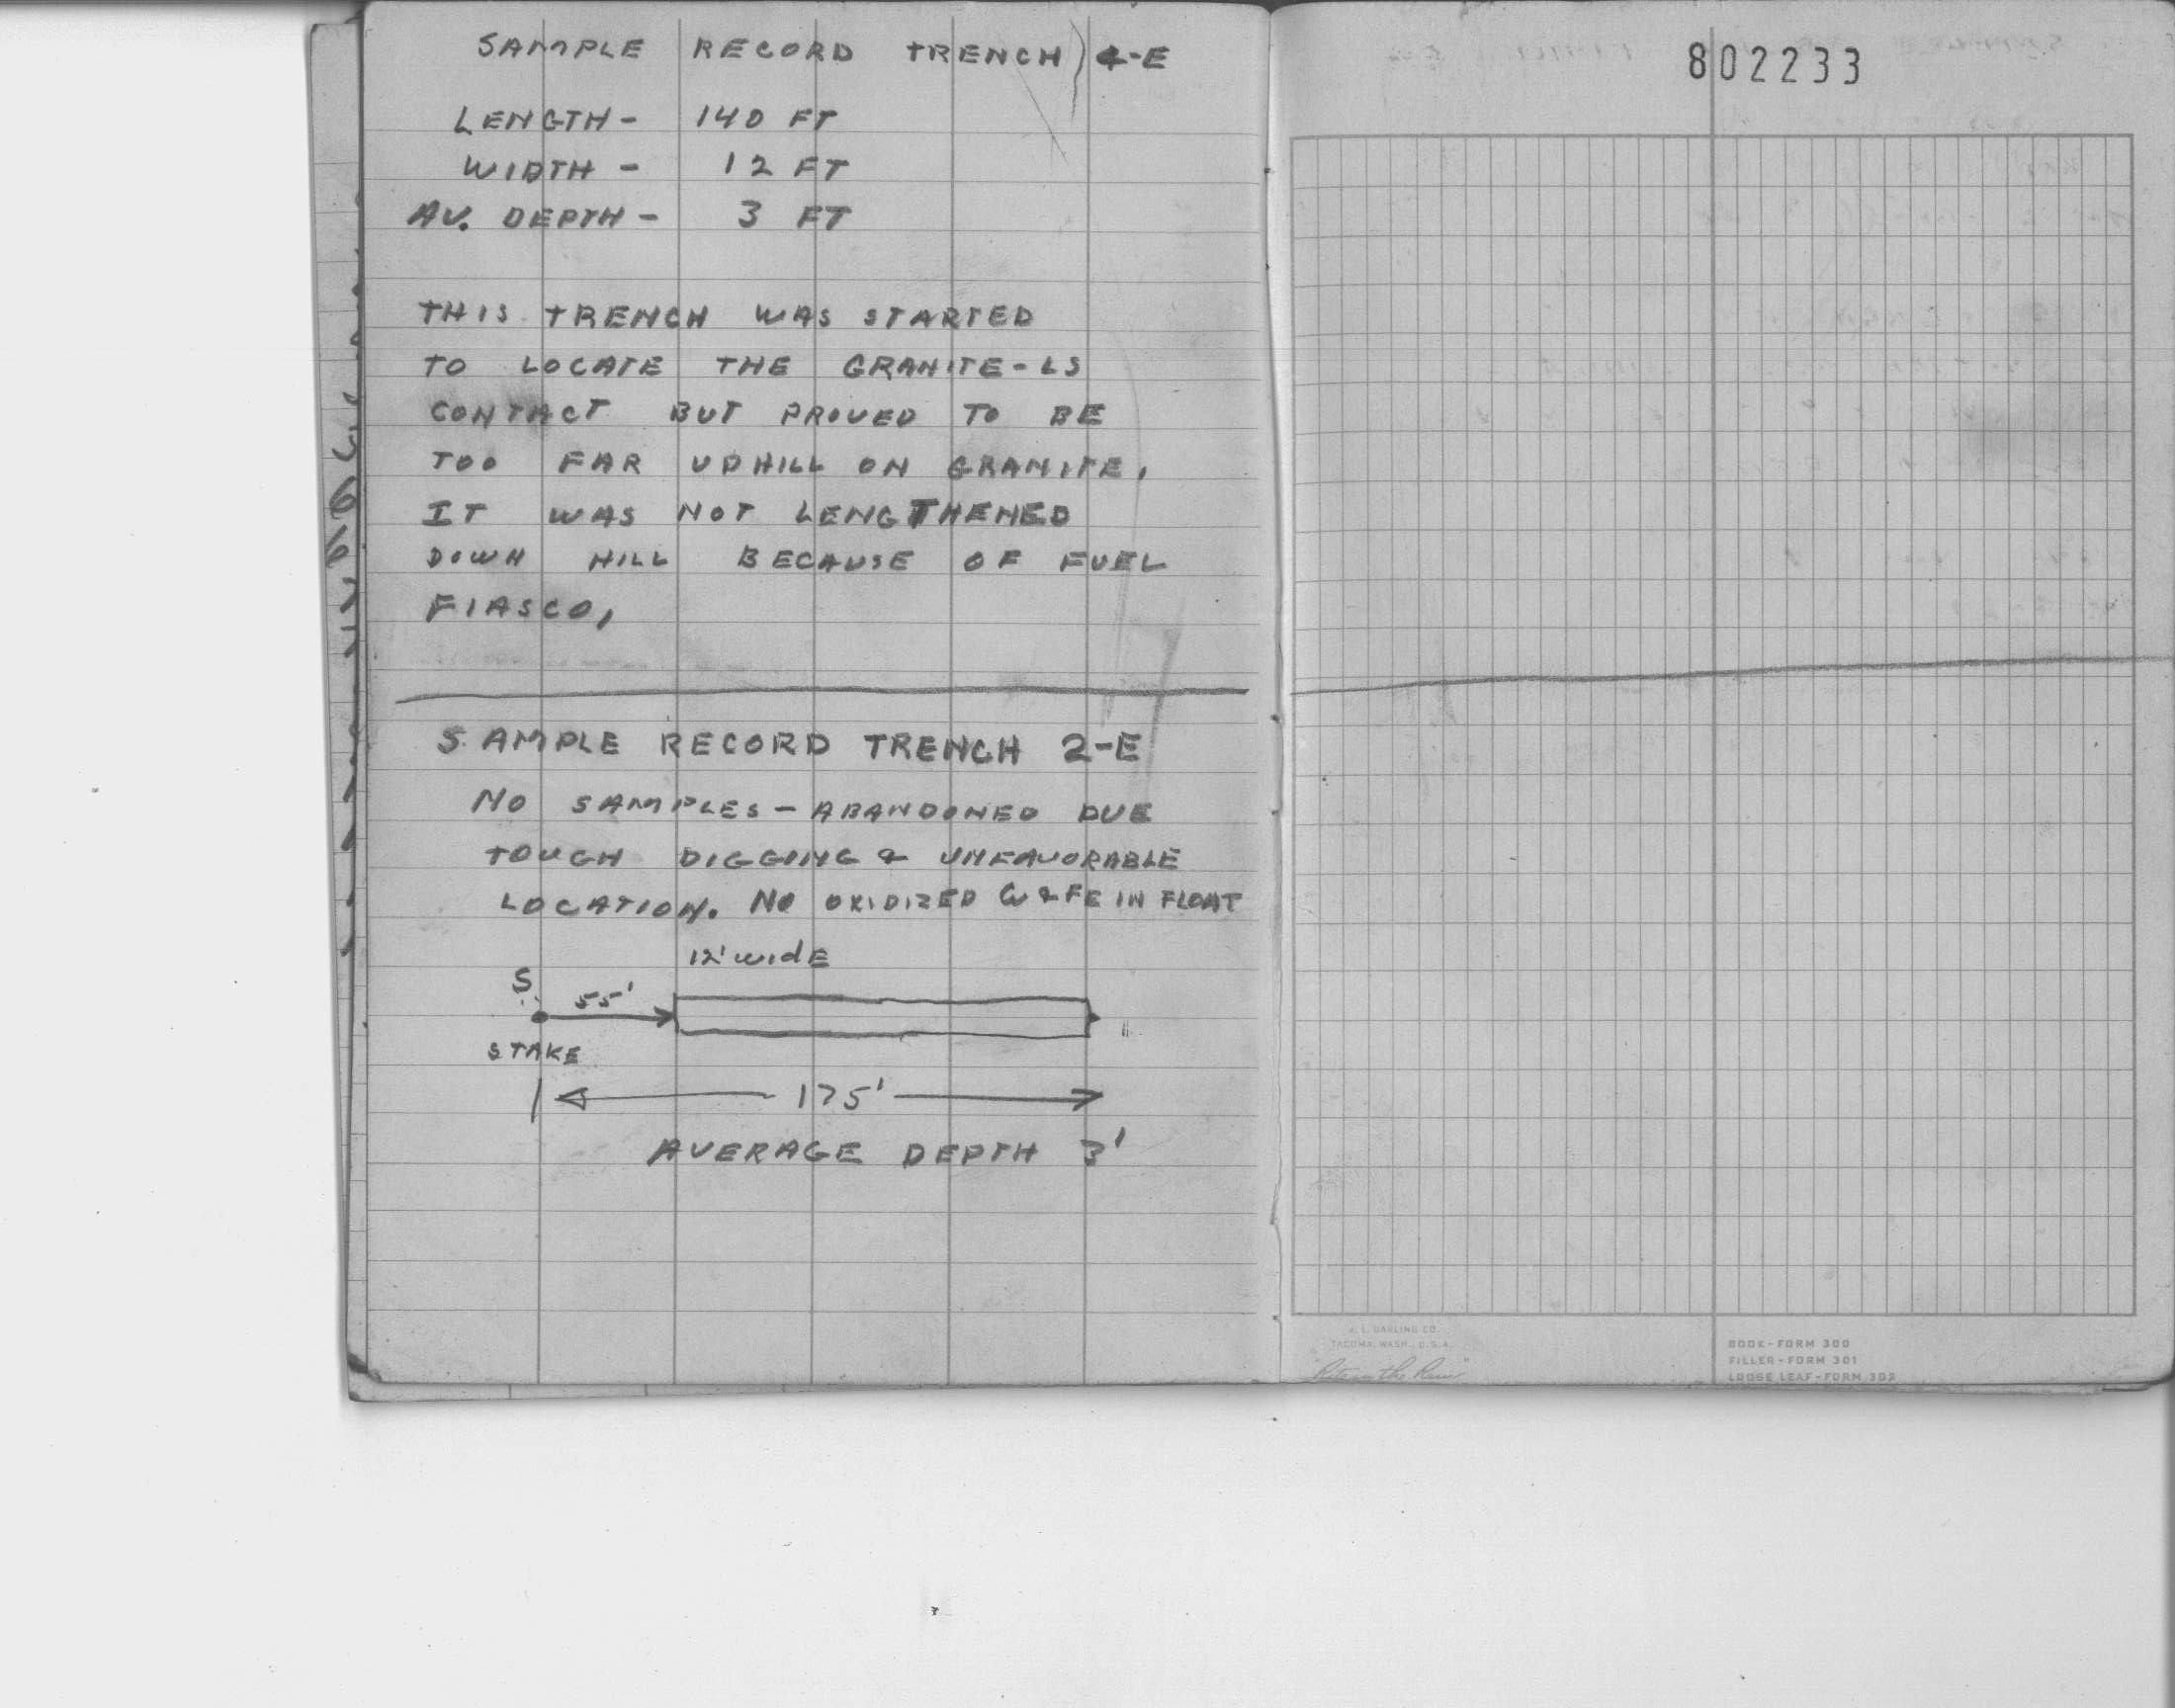 SAMPLE RECORD TRENCH 4-E
LENGTH - 140 FT
WIDTH - 12 FT
AV. DEPTH - 3 FT
THIS TRENCH WAS STARTED
TO LOCATE THE GRANITE-LS
CONTACT BUT PROVED TO BE
TOO FAR UPHILL ON GRANITE.
IT WAS NOT LENGTHENED
DOWN HILL BECAUSE OF FUEL
FIASCO.
SAMPLE RECORD TRENCH 2-E
NO SAMPLES - ABANDONED DUE
TOUGH DIGGING & UNFAVORABLE
LOCATION. NO OXIDIZED CU & FE IN FLOAT
12' WIDE
S.
55'
STAKE
175'
AVERAGE DEPTH 3'
802233
J. L. DARLING CO.
TACOMA, WASH., U.S.A.
"Rite in the Rain"
BOOK - FORM 300
FILLER - FORM 301
LOOSE LEAF - FORM 302